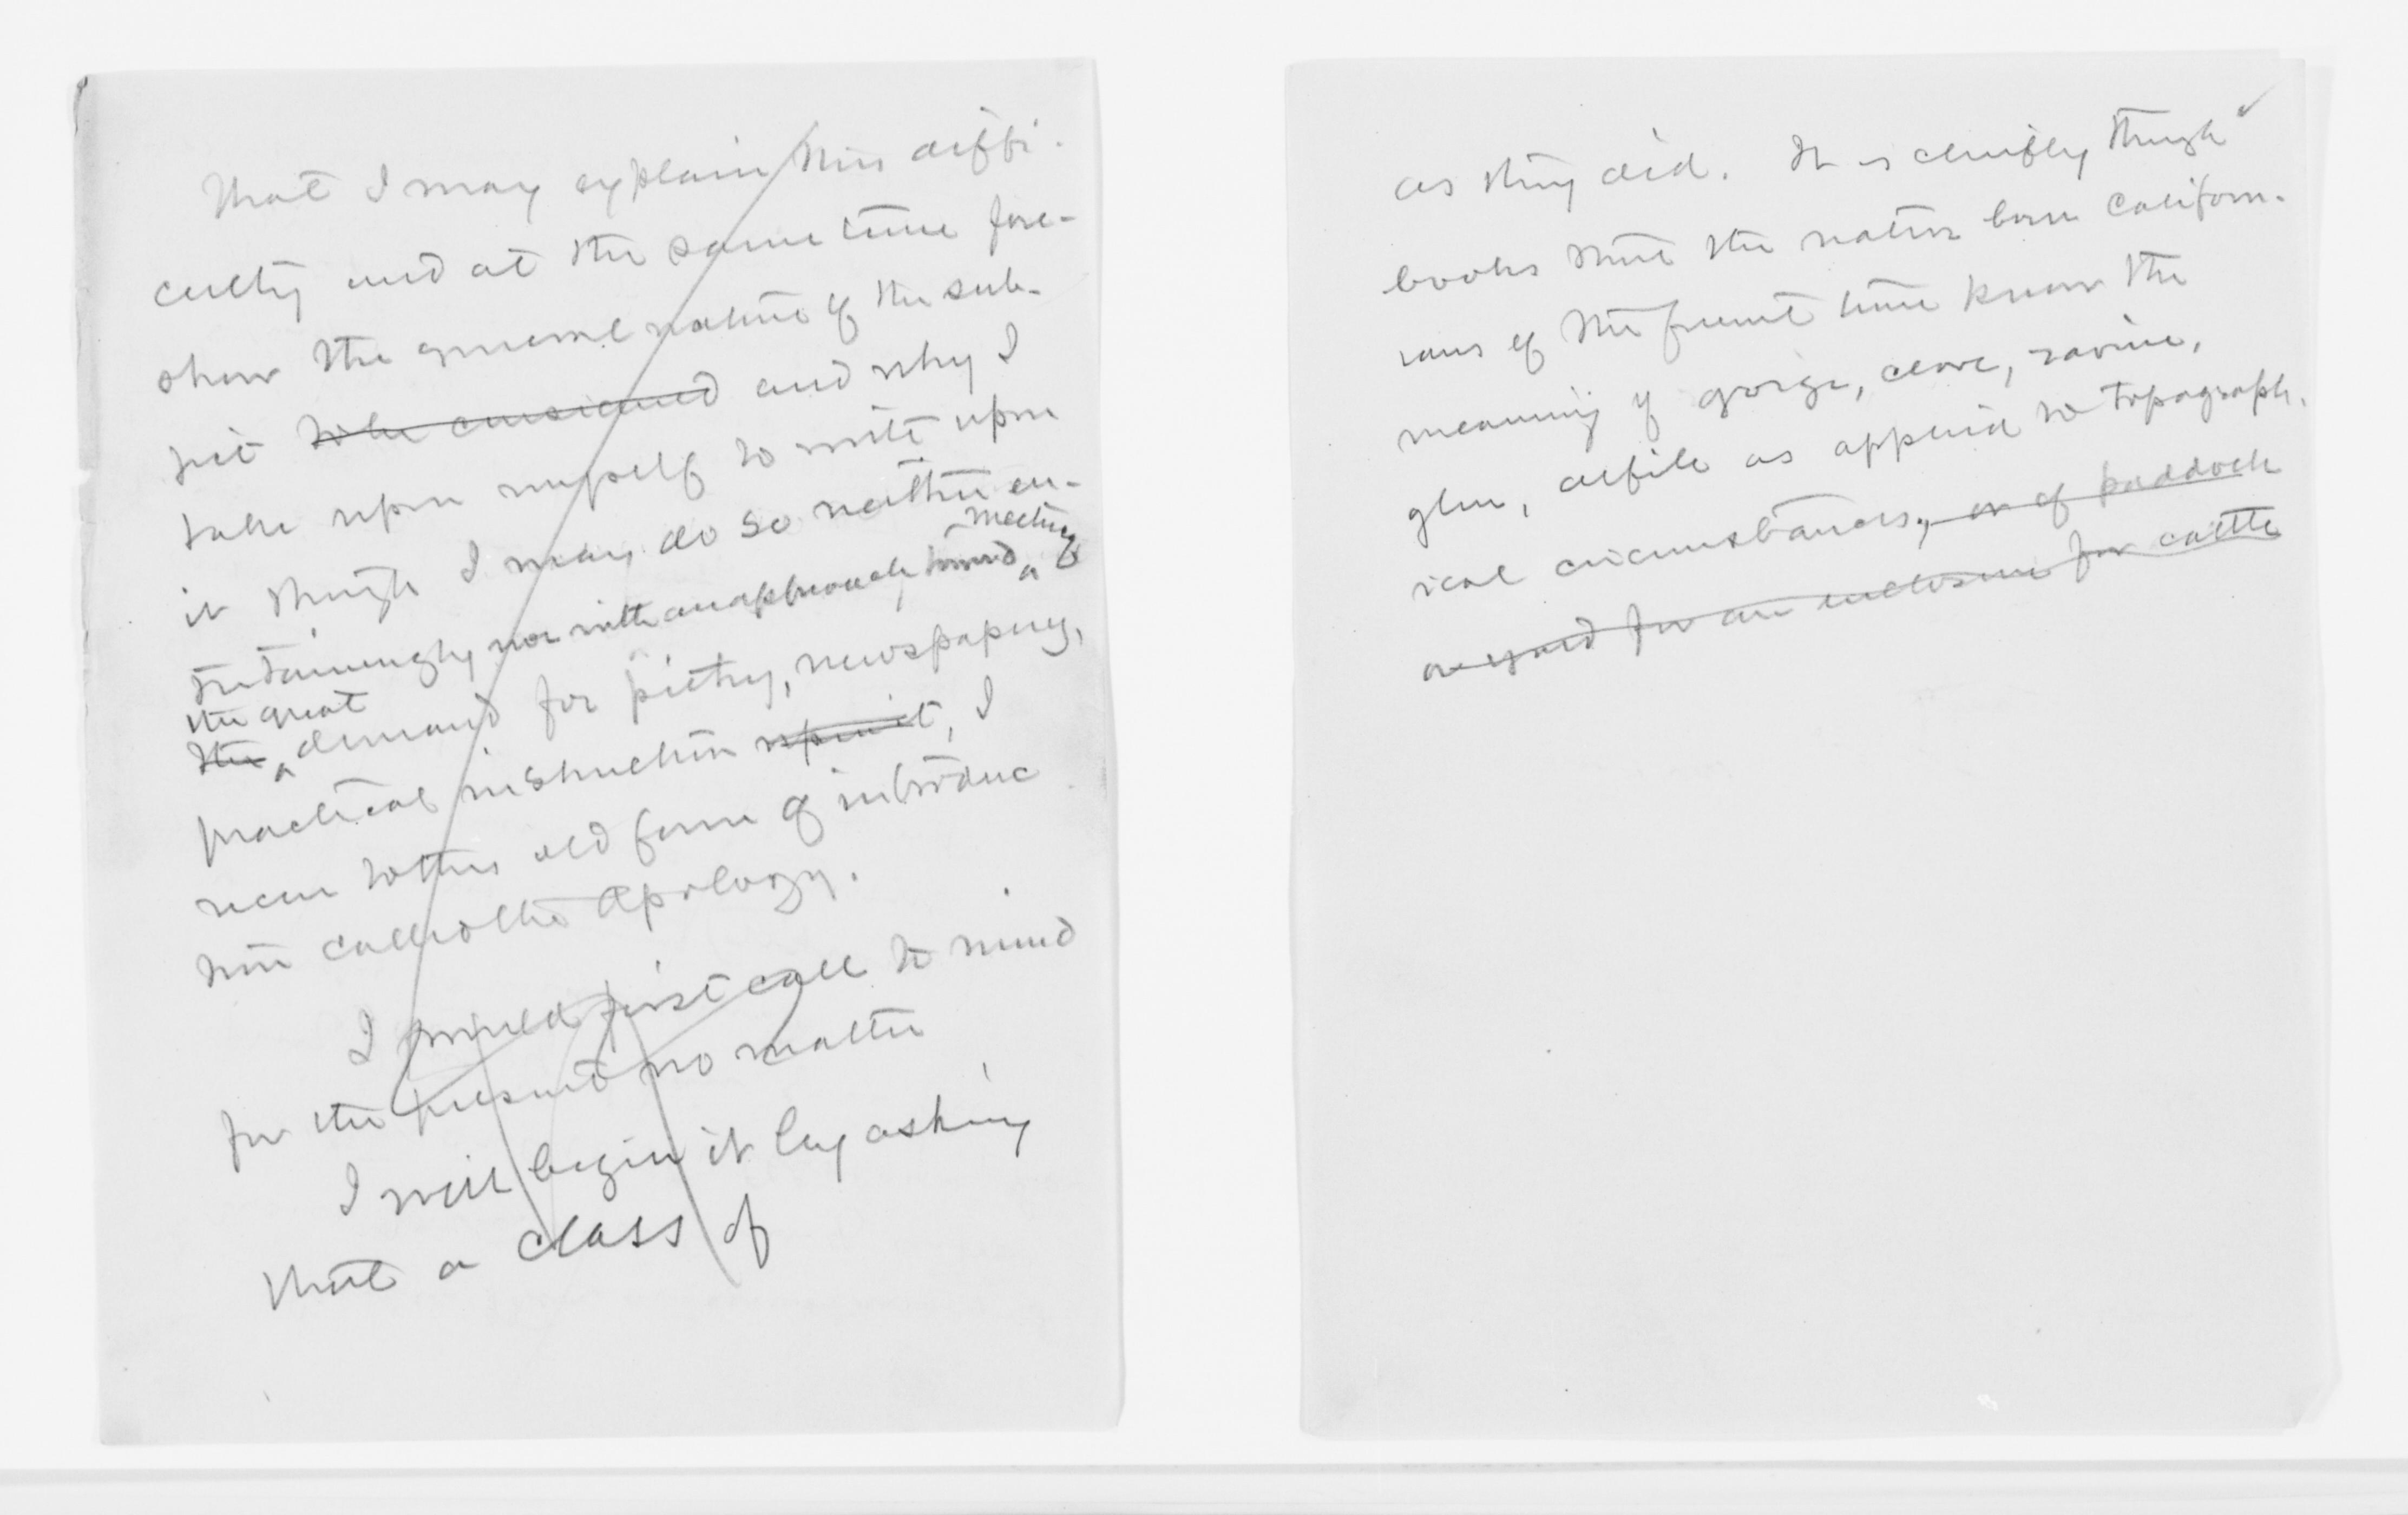 That I may explain this diffi-
culty and at the same time fore-
show the general nature of the sub-
ject to be considered and why I
take upon myself to write upon
it though I may do so neither en-
tertainingly nor with an approach toward meeting of
the great
the demand for pithy, newspapery,
practical instruction upon it, I
recur to the old form of introduc
tion called the Apology.
I would first call to mind
for the present no matter
I will begin it by asking
that a class of
as they did. It is chiefly through
books that the native born Californ-
ians of the present time know the
meaning of gorge, clove, ravine,
glen, defile as applied to topograph-
ical circumstances, or of paddock
or yard for an inclosure for cattle